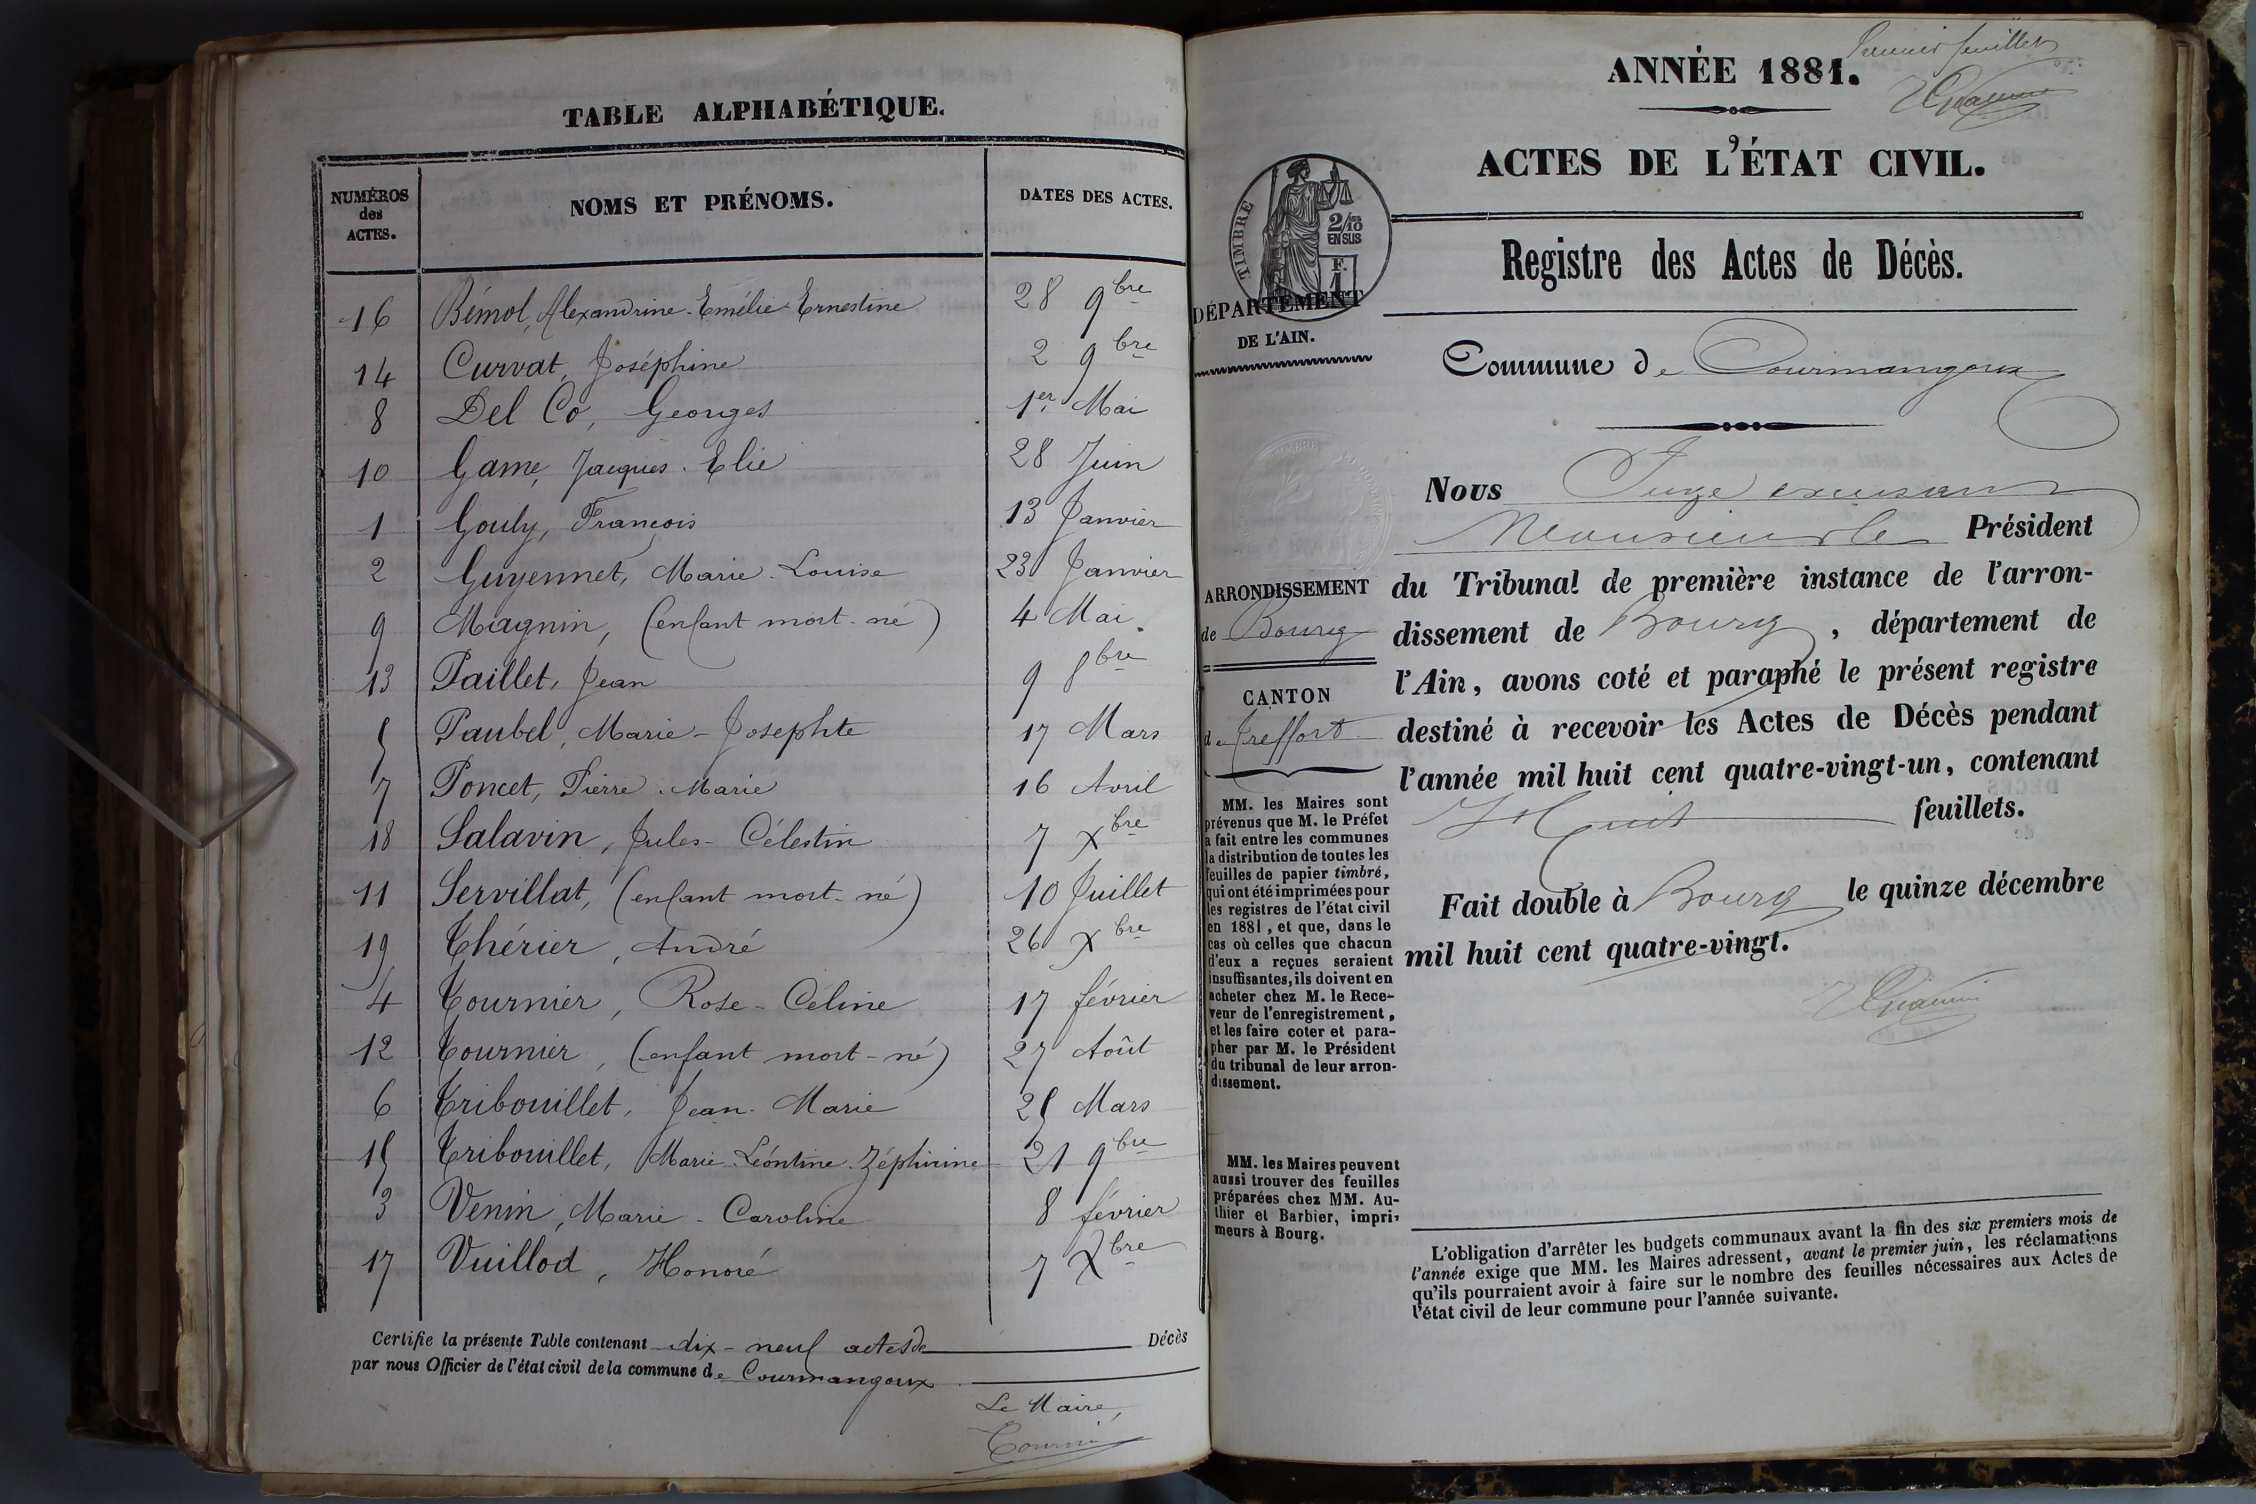 TABLE ALPHABÉTIQUE.
NUMÉROS des ACTES.
NOMS ET PRÉNOMS.
DATES DES ACTES.
16 Bémol, Alexandrine-Emélie-Ernestine 28 9bre
14 Curvat, Joséphine 2 9bre
8 Del Co, Georges 1er Mai
10 Game, Jacques-Elie 28 Juin
1 Gouly, François 13 Janvier
2 Guyennet, Marie-Louise 23 Janvier
9 Magnin, (enfant mort-né) 4 Mai
13 Paillet, Jean 9 8bre
5 Paubel, Marie-Josephte 17 Mars
7 Poncet, Pierre-Marie 16 Avril
18 Salavin, Jules-Célestin 7 Xbre
11 Servillat, (enfant mort-né) 10 Juillet
19 Thérier, André 26 Xbre
4 Tournier, Rose-Celine 17 février
12 Tournier, (enfant mort-né) 27 Août
6 Tribouillet, Jean-Marie 25 Mars
15 Tribouillet, Marie-Léontine-Zéphirine 21 9bre
3 Venin, Marie-Caroline 8 février
17 Vuillod, Honoré 7 Xbre
Certifie la présente Table contenant dix-neuf actes de Décès
par nous Officier de l'état civil de la commune de Courmangoux
Le Maire,
ANNÉE 1881.
Premier feuillet
ACTES DE L'ÉTAT CIVIL.
TIMBRE
2/10
EN SUS
F.
1
Registre des Actes de Décès.
DÉPARTEMENT
DE L'AIN.
Commune de Courmangoux
Nous Juge excusant
Monsieur le Président
du Tribunal de première instance de l'arron-
dissement de Bourg, département de
l'Ain, avons coté et paraphé le présent registre
destiné à recevoir les Actes de Décès pendant
l'année mil huit cent quatre-vingt-un, contenant
huit feuillets.
Fait double à Bourg le quinze décembre
mil huit cent quatre-vingt.
ARRONDISSEMENT
de Bourg
CANTON
de Treffort
MM. les Maires sont
prévenus que M. le Préfet
a fait entre les communes
la distribution de toutes les
feuilles de papier timbré,
qui ont été imprimées pour
les registres de l'état civil
en 1881, et que, dans le
cas où celles que chacun
d'eux a reçues seraient
insuffisantes, ils doivent en
acheter chez M. le Rece-
veur de l'enregistrement,
et les faire coter et para-
pher par M. le Président
du tribunal de leur arron-
dissement.
MM. les Maires peuvent
aussi trouver des feuilles
préparées chez MM. Au-
thier et Barbier, impri-
meurs à Bourg.
L'obligation d'arrêter les budgets communaux avant la fin des six premiers mois de
l'année exige que MM. les Maires adressent, avant le premier juin, les réclamations
qu'ils pourraient avoir à faire sur le nombre des feuilles nécessaires aux Actes de
l'état civil de leur commune pour l'année suivante.